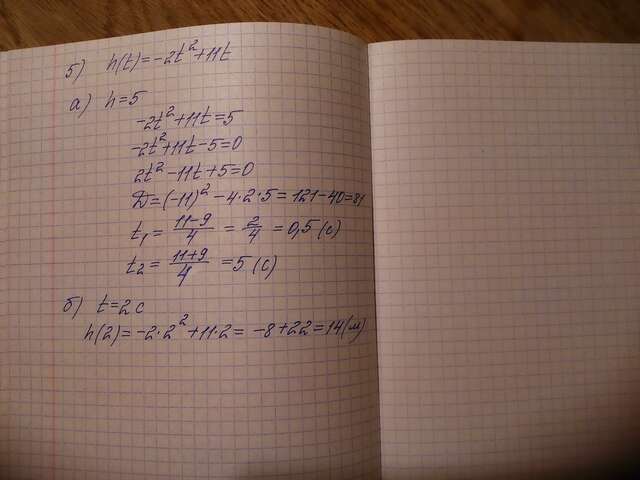 5) h(t)=-2t²+11t
а) h=5
-2t²+11t=5
-2t²+11t-5=0
2t²-11t+5=0
D=(-11)²-4·2·5=121-40=81
t₁= (11-9)/4 = 2/4 = 0,5 (с)
t₂= (11+9)/4 = 5 (с)
б) t=2с
h(2)=-2·2²+11·2= -8+22=14(м)